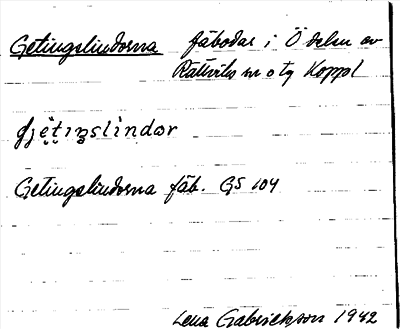 Getingslindorna fäbodar i Ö delen av
Rättviks sn o tg Koppl
Getingslindorna fäb. GS 104
Lena Gabrielsson 1942